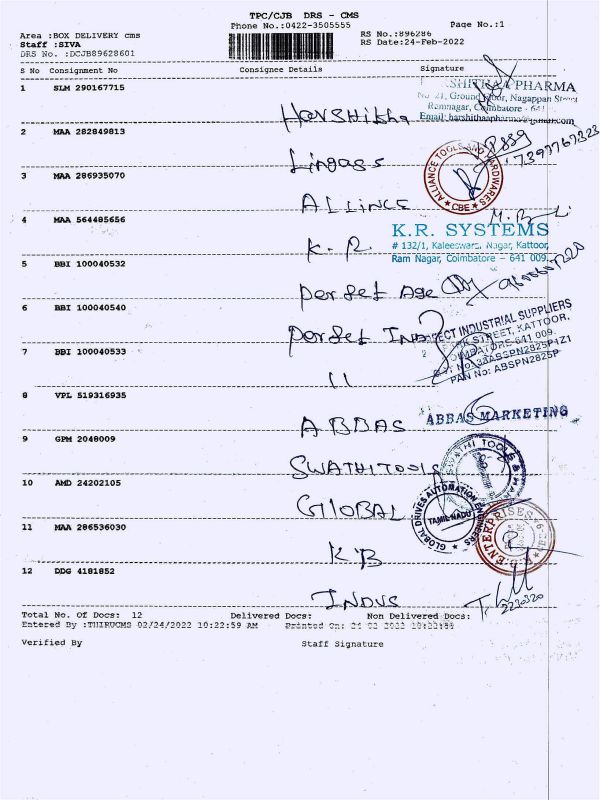 TPC/CJB DRS - CMS
Phone No.:0422-3505555 Page No.:1
Area :BOX DELIVERY cms RS No.:896286
Staff :SIVA RS Date:24-Feb-2022
DRS No. :DCJB89628601
S No Consignment No Consignee Details Signature
1 SLM 290167715 Harshitha
PHARMA
No 21, Ground Floor, Nagappan Street
Ramnagar, Coimbatore - 641
Email: harshithaapharma@gmail.com
2 MAA 282849813 Lingass
3 MAA 286935070 ALLINCE
ALLIANCE TOOLS AND HARDWARES
CBE
4 MAA 564485656 K.R.
K.R. SYSTEMS
# 132/1, Kaleeswara Nagar, Kattoor,
Ram Nagar, Coimbatore - 641 009.
5 BBI 100040532 perfet Age
6 BBI 100040540 perfet Ind
INDUSTRIAL SUPPLIERS
STREET, KATTOOR,
COIMBATORE-641 009.
PAN No: ABSPN2825P
7 BBI 100040533 11
8 VPL 519316935 ABBAS
ABBAS MARKETING
9 GPM 2048009 SWATHITOOLS
SWATHI TOOLS &
10 AMD 24202105 GLOBAL
GLOBAL DRIVES AUTOMATION ENGINEERS
TAMILNADU
11 MAA 286536030 K B
ENTERPRISES
12 DDG 4181852 INDUS
Total No. Of Docs: 12 Delivered Docs: Non Delivered Docs:
Entered By :THIRUCMS 02/24/2022 10:22:59 AM Printed On: 24 02 2022 10:22:59
Verified By Staff Signature